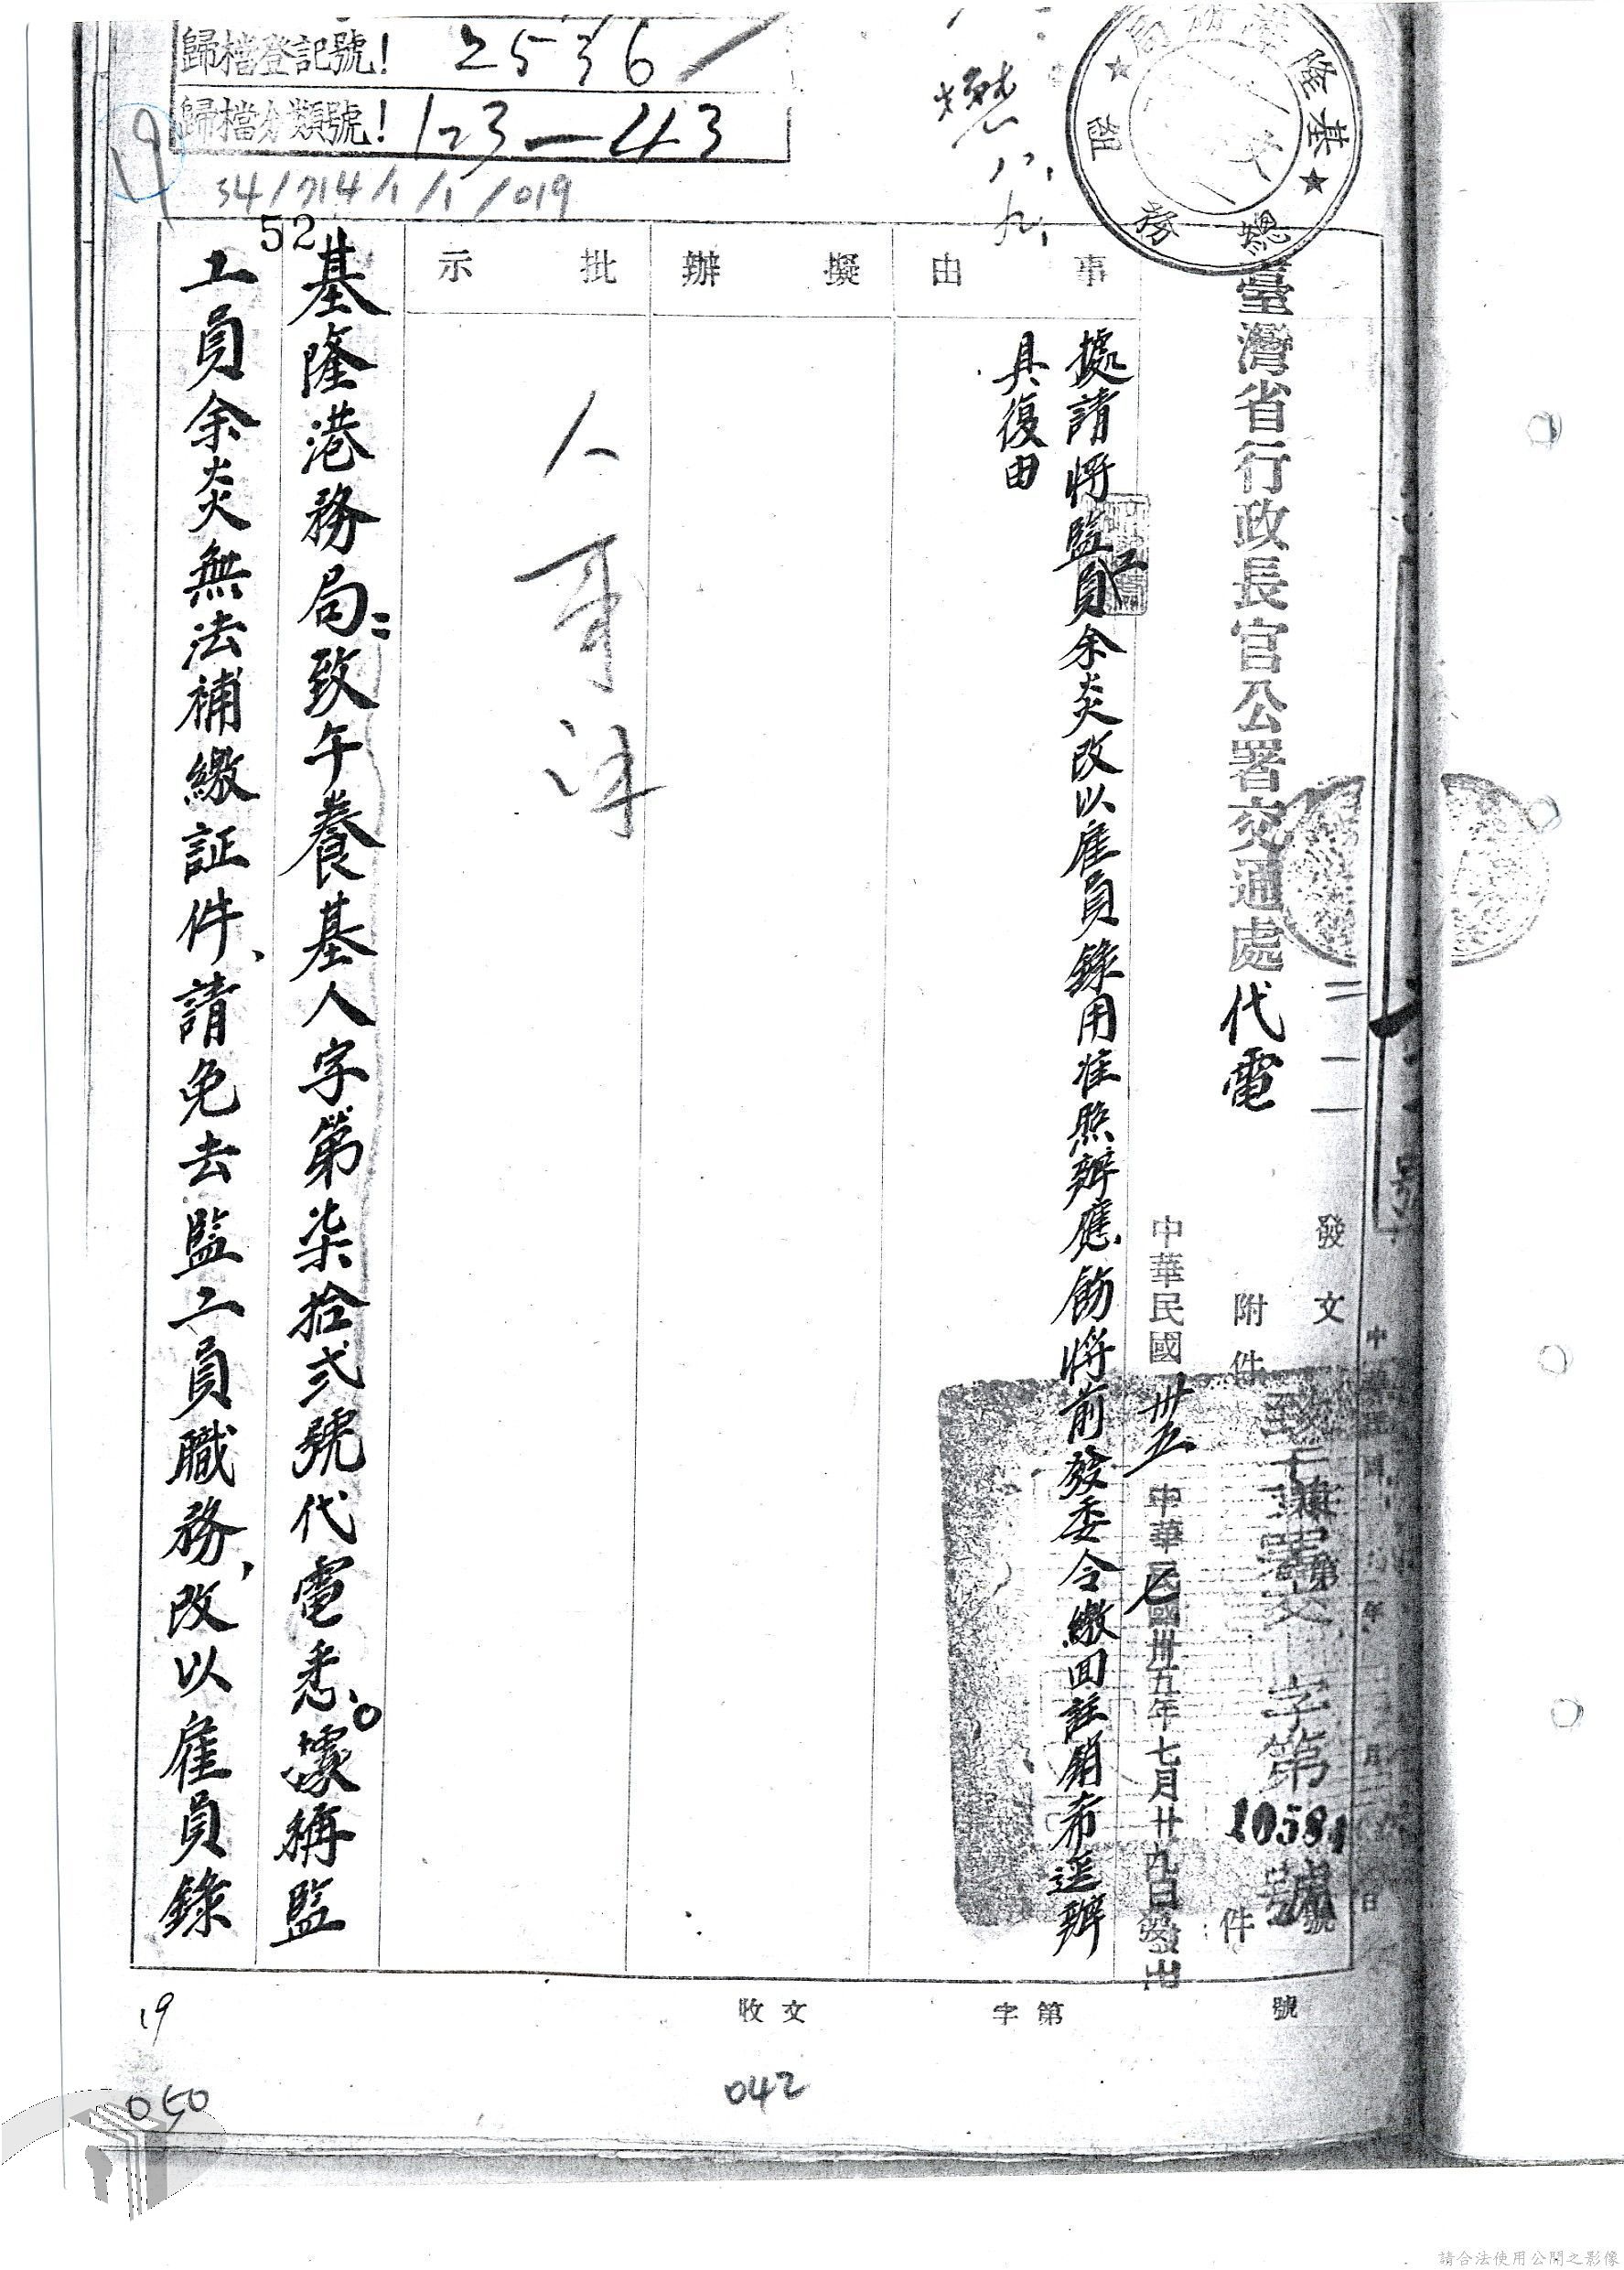 歸檔登記號! 2536
歸檔分類號! 123-43
34/714/1/1/019
19
52
基隆港務局
總務組
懋
八、九、
臺灣省行政長官公署交通處代電
發文
附件
致午
署交 字第10584號
件
中華民國卅五
中華民國卅五年七月廿九日發出
事由
擬辦
批示
據請將監工員余炎改以雇員錄用准照辦應飭將前發委令繳回註銷希遵辦
具復由
人事課
基隆港務局:致午養基人字第柒拾弍號代電悉。據稱監
工員余炎無法補繳証件、請免去監工員職務、改以雇員錄
收文
字第
號
19
050
042
請合法使用公開之影像